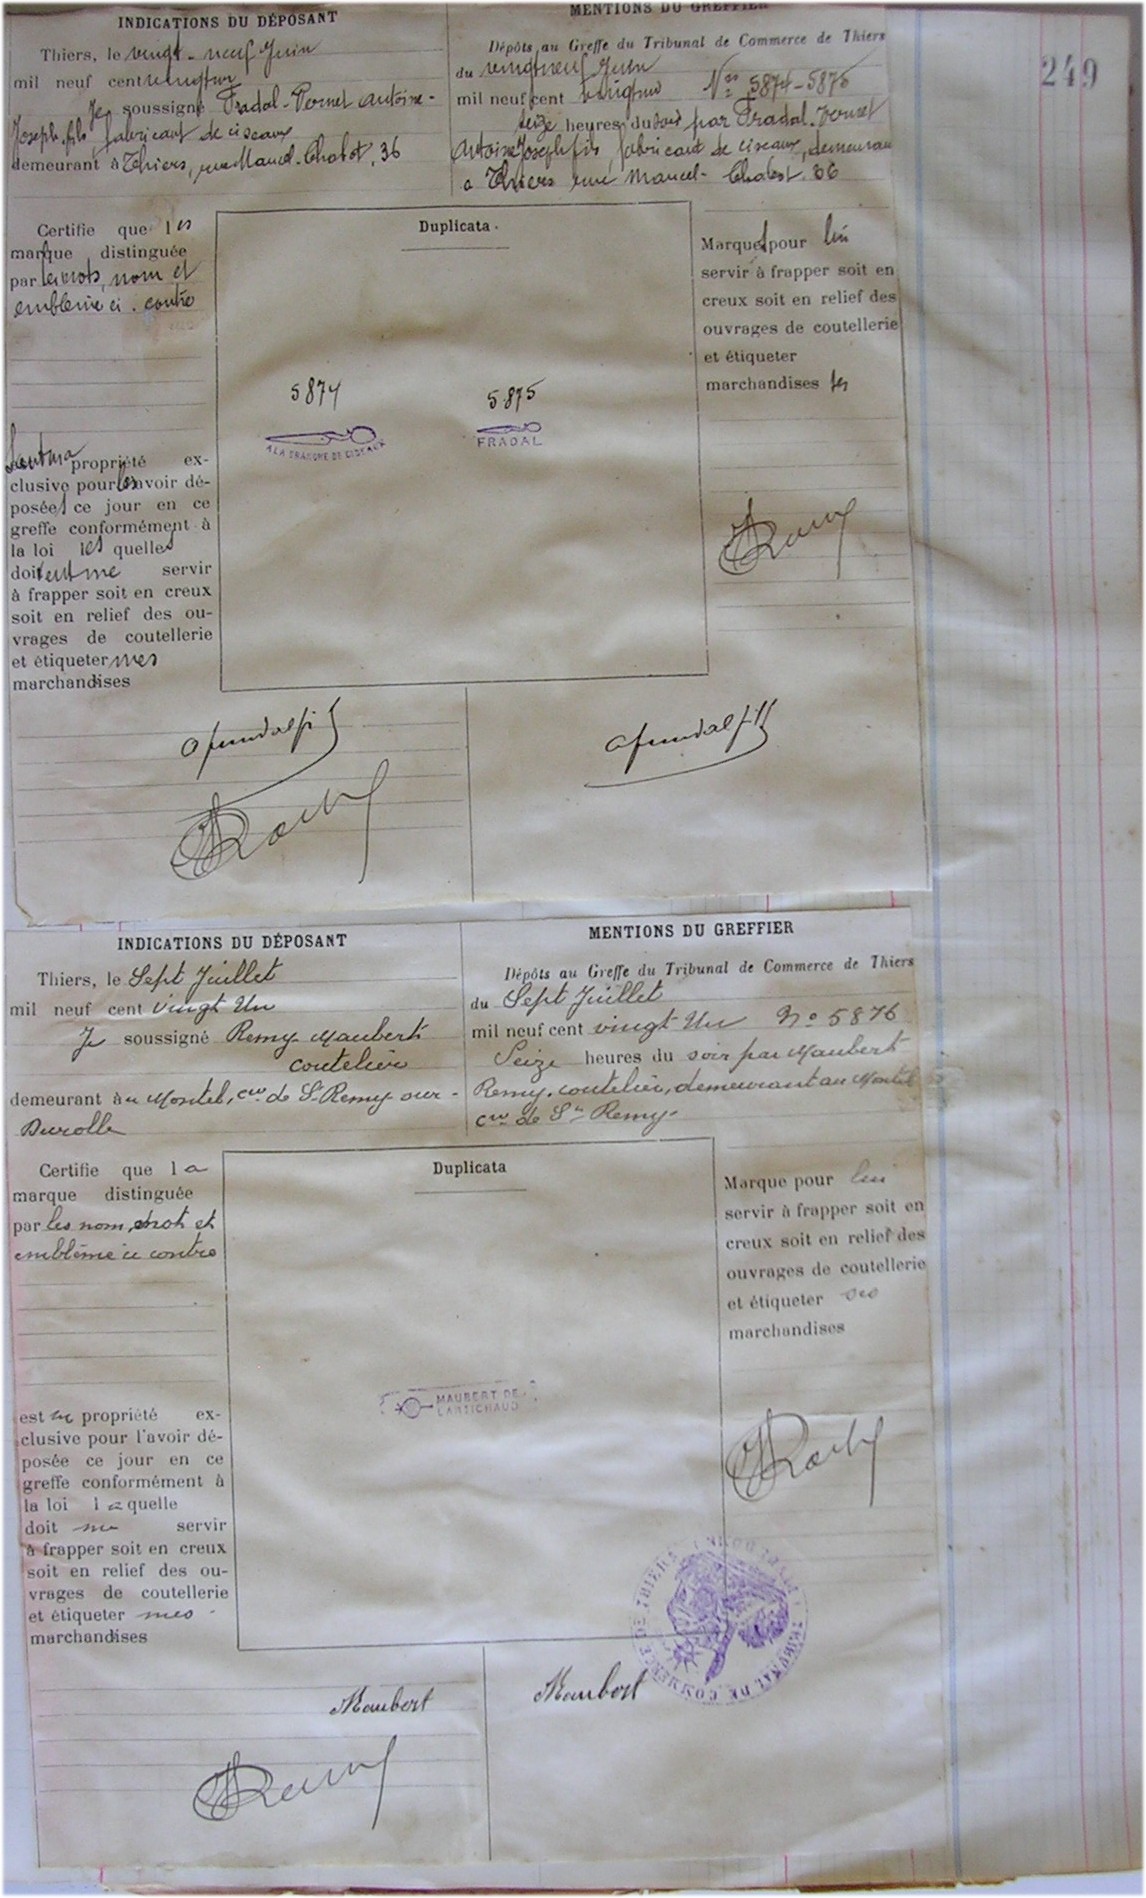 249
INDICATIONS DU DÉPOSANT
Thiers, le vingt-neuf Juin
mil neuf cent vingt un
Je soussigné Fradal-Vernet Antoine-
Joseph, fils, fabricant de ciseaux
demeurant à Thiers, rue Mancel-Chabot, 36
MENTIONS DU GREFFIER
Dépôts au Greffe du Tribunal de Commerce de Thiers
du vingt neuf Juin
mil neuf cent vingt un Nos 5874-5875
seize heures du soir par Fradal-Vernet
Antoine Joseph fils, fabricant de ciseaux, demeurant
à Thiers rue Mancel-Chabot 36
Certifie que les
marque distinguée
par les mots, nom et
emblème ci-contre
sont ma propriété ex-
clusive pour les avoir dé-
posées ce jour en ce
greffe conformément à
la loi lesquelles
doivent me servir
à frapper soit en creux
soit en relief des ou-
vrages de coutellerie
et étiqueter mes
marchandises
Duplicata.
5874
5875
A LA DE CISEAUX
FRADAL
Marques pour lui
servir à frapper soit en
creux soit en relief des
ouvrages de coutellerie
et étiqueter
marchandises ses
INDICATIONS DU DÉPOSANT
Thiers, le Sept Juillet
mil neuf cent vingt Un
Je soussigné Remy Maubert
coutelier
demeurant au Montel, cne de St Remy-sur-
Durolle
MENTIONS DU GREFFIER
Dépôts au Greffe du Tribunal de Commerce de Thiers
du Sept Juillet
mil neuf cent vingt Un No 5876
Seize heures du soir par Maubert
Remy, coutelier, demeurant au Montel
cne de St Remy-
Certifie que la
marque distinguée
par les nom, mot et
emblème ci contre
est ma propriété ex-
clusive pour l'avoir dé-
posée ce jour en ce
greffe conformément à
la loi laquelle
doit me servir
à frapper soit en creux
soit en relief des ou-
vrages de coutellerie
et étiqueter mes
marchandises
Duplicata
MAUBERT DE
L'ARTICHAUD
Marque pour lui
servir à frapper soit en
creux soit en relief des
ouvrages de coutellerie
et étiqueter ses
marchandises
TRIBUNAL DE COMMERCE DE THIERS
Maubert
Maubert